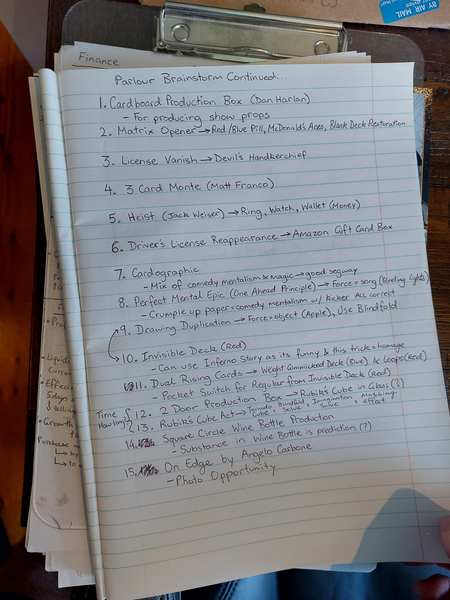 BY AIR MAIL
Finance
Parlour Brainstorm Continued...
1. Cardboard Production Box (Dan Harlan)
- For producing show props
2. Matrix Opener → Red/Blue Pill, McDonald's Aces, Blank Deck Restoration
3. License Vanish → Devil's Handkerchief
4. 3 Card Monte (Matt Franco)
5. Heist (Jack Weiser) → Ring, Watch, Wallet (Money)
6. Driver's License Reappearance → Amazon Gift Card Box
7. Cardographic
- Mix of comedy mentalism & magic → good segway
8. Perfect Mental Epic (One Ahead Principle) → Force = song (Blinding Lights)
- Crumple up paper = comedy mentalism w/ Kicker All correct
9. Drawing Duplication → Force = object (Apple), Use Blindfold
10. Invisible Deck (Red)
- Can use Inferno Story as its funny & this trick = homage
11. Dual Rising Cards → Weight Gimmicked Deck (Blue) & Loops (Red)
- Pocket Switch for Regular from Invisible Deck (Red)
Time
How long?
12. 2 Door Production Box → Rubik's Cube in Glass (?)
13. Rubik's Cube Act → Tornado Cube, Blindfold Solve, Imagination Solve, Matching Effect
14. Square Circle Wine Bottle Production
- Substance in Wine Bottle is prediction (?)
15. On Edge by Angelo Carbone
- Photo Opportunity